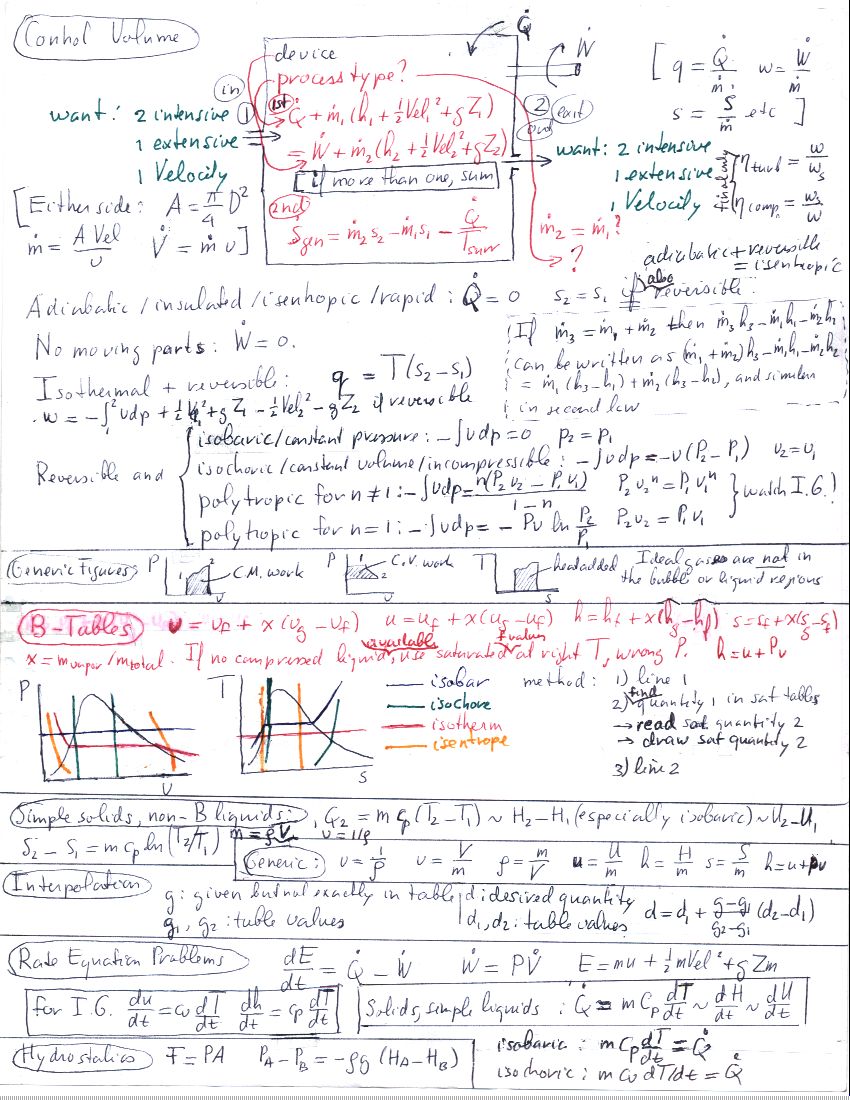 Control Volume
device
process type?
Q̇
Ẇ
[ q = Q̇/ṁ   w = Ẇ/ṁ
s = Ṡ/ṁ etc ]
in
want: 2 intensive 1
1 extensive
1 Velocity
1st Q̇ + ṁ₁(h₁ + ½Vel₁² + gZ₁)
= Ẇ + ṁ₂(h₂ + ½Vel₂² + gZ₂)
[if more than one, sum
2nd
Ṡgen = ṁ₂s₂ − ṁ₁s₁ − Q̇/Tsurr
2 exit
out
want: 2 intensive
1 extensive
1 Velocity
ηturb = w/ws
ηcomp = ws/w
[Either side: A = π/4 D²
ṁ = A Vel/υ   V̇ = ṁ υ]
ṁ₂ = ṁ₁?
?
adiabatic + reversible
= isentropic
Adiabatic / insulated / isentropic / rapid : Q̇ = 0   s₂ = s₁ if also reversible
No moving parts: Ẇ = 0.
Isothermal + reversible: q = T(s₂ − s₁)
w = −∫₁² υdp + ½Vel₁² + gZ₁ − ½Vel₂² − gZ₂ if reversible
If ṁ₃ = ṁ₁ + ṁ₂ then ṁ₃h₃ − ṁ₁h₁ − ṁ₂h₂
can be written as (ṁ₁ + ṁ₂)h₃ − ṁ₁h₁ − ṁ₂h₂
= ṁ₁(h₃ − h₁) + ṁ₂(h₃ − h₂), and similar
in second law
Reversible and
isobaric/constant pressure: −∫υdp = 0   P₂ = P₁
isochoric/constant volume/incompressible: −∫υdp = −υ(P₂ − P₁)   υ₂ = υ₁
polytropic for n ≠ 1: −∫υdp = n(P₂υ₂ − P₁υ₁)/(1 − n)   P₂υ₂ⁿ = P₁υ₁ⁿ
polytropic for n = 1: −∫υdp = −Pυ ln P₂/P₁   P₂υ₂ = P₁υ₁
} watch I.G.!
Generic Figures
P 1 2 υ C.M. work
P 1 2 υ C.V. work
T s heat added
Ideal gases are not in
the bubble or liquid regions
B-Tables υ = υf + x(υg − υf)   u = uf + x(ug − uf)   h = hf + x(hg − hf)   s = sf + x(sg − sf)
x = mvapor/mtotal. If no compressed liquid available, use saturated f values at right T, wrong P.   h = u + Pυ
P
υ
T
s
isobar
isochore
isotherm
isentrope
method: 1) line 1
2) find quantity 1 in sat tables
→ read sat quantity 2
→ draw sat quantity 2
3) line 2
Simple solids, non-B liquids: ₁Q₂ = m cp(T₂ − T₁) ~ H₂ − H₁ (especially isobaric) ~ U₂ − U₁
S₂ − S₁ = m cp ln(T₂/T₁)   m = ρV   υ = 1/ρ
Generic: υ = 1/ρ   υ = V/m   ρ = m/V   u = U/m   h = H/m   s = S/m   h = u + pυ
Interpolation
g: given but not exactly in table
g₁, g₂: table values
d: desired quantity
d₁, d₂: table values
d = d₁ + (g − g₁)/(g₂ − g₁) (d₂ − d₁)
Rate Equation Problems   dE/dt = Q̇ − Ẇ   Ẇ = PV̇   E = mu + ½mVel² + gZm
for I.G. du/dt = cv dT/dt   dh/dt = cp dT/dt
Solids, simple liquids: Q̇ = m Cp dT/dt ~ dH/dt ~ dU/dt
Hydrostatics   F = PA   PA − PB = −ρg (HA − HB)
isobaric: m Cp dT/dt = Q̇
isochoric: m Cv dT/dt = Q̇